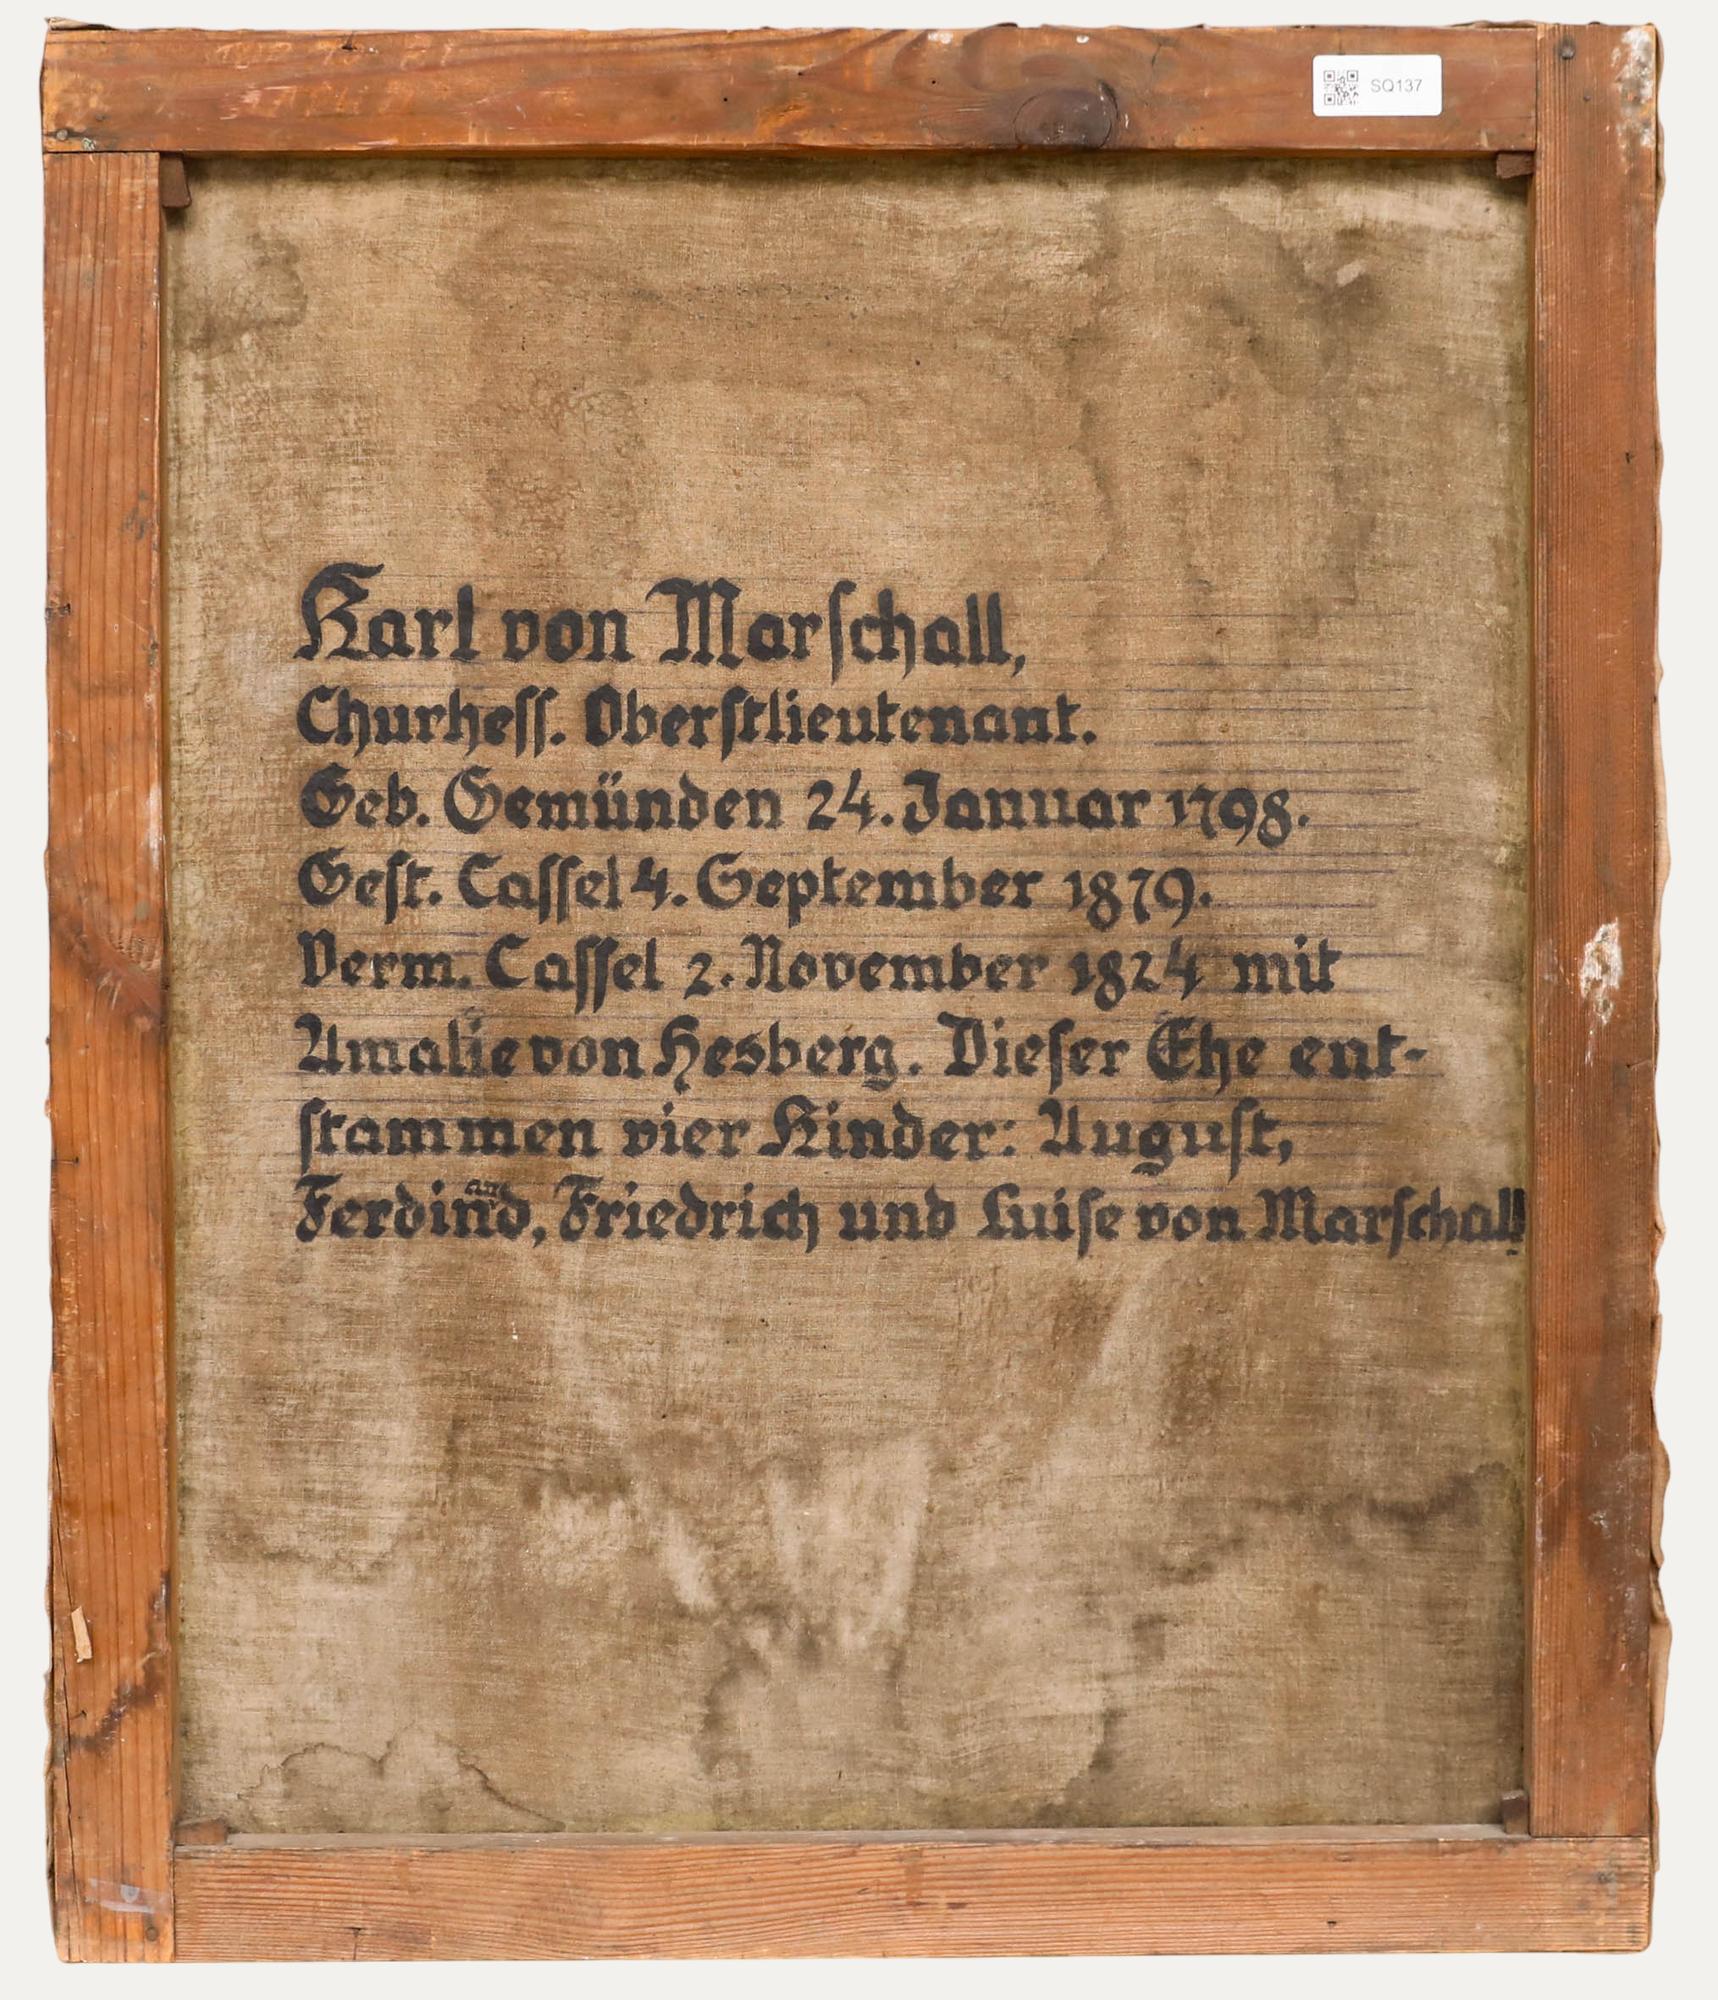 SQ137
Karl von Marſchall,
Churheſſ. Oberſtlieutenant.
Geb. Gemünden 24. Januar 1798.
Geſt. Caſſel 4. September 1879.
Verm. Caſſel 2. November 1824 mit
Amalie von Hesberg. Dieſer Ehe ent-
ſtammen vier Kinder: Auguſt,
Ferdinand, Friedrich und Luiſe von Marſchall